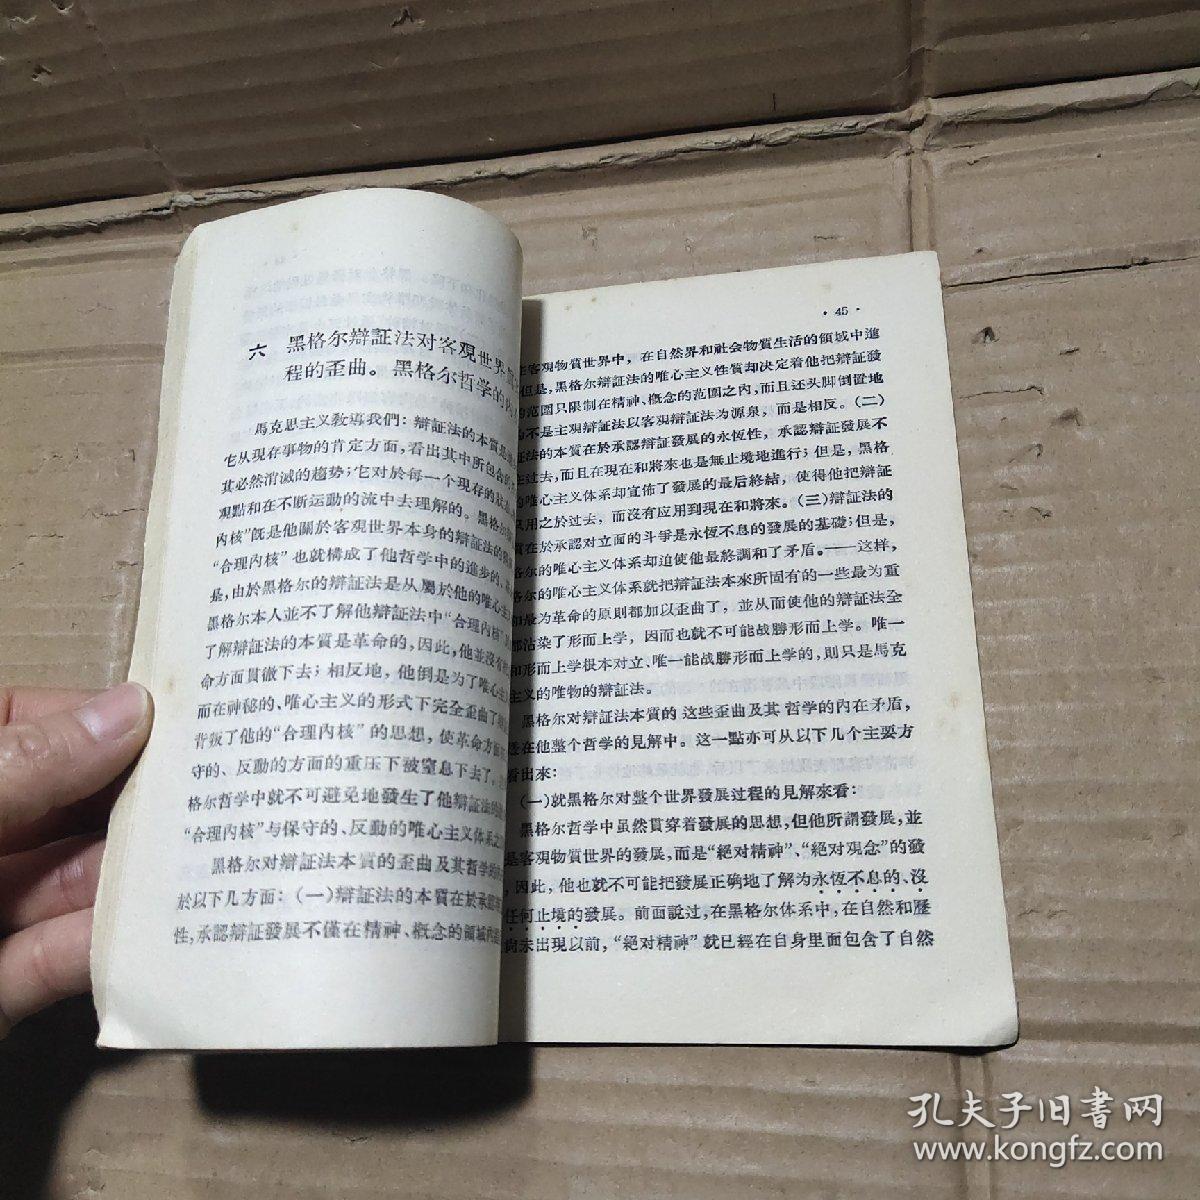 六 黑格尔辯証法对客观世界
程的歪曲。黑格尔哲学的
馬克思主义教導我們：辯証法的本質是
它从現存事物的肯定方面，看出其中所包含的
其必然消滅的趨势；它对於每一个現存的
观點和在不断运動的流中去理解的。黑格尔
內核”旣是他關於客观世界本身的辯証法的
“合理內核”也就構成了他哲学中的進步的、
是，由於黑格尔的辯証法是从屬於他的唯心主
黑格尔本人並不了解他辯証法中“合理內核”
了解辯証法的本質是革命的，因此，他並沒有
命方面貫徹下去；相反地，他倒是为了唯心
而在神秘的、唯心主义的形式下完全歪曲了
背叛了他的“合理內核”的思想，使革命方面
守的、反動的方面的重压下被窒息下去了。
格尔哲学中就不可避免地發生了他辯証法的
“合理內核”与保守的、反動的唯心主义体系之
黑格尔对辯証法本質的歪曲及其哲学
於以下几方面：（一）辯証法的本質在於承認
性，承認辯証發展不僅在精神、概念的領域內
· 45 ·
在客观物質世界中，在自然界和社会物質生活的領域中進
但是，黑格尔辯証法的唯心主义性質却決定着他把辯証發
的范圍只限制在精神、概念的范圍之內，而且还头脚倒置地
为不是主观辯証法以客观辯証法为源泉，而是相反。（二）
証法的本質在於承認辯証發展的永恆性，承認辯証發展不
在过去，而且在現在和將來也是無止境地進行；但是，黑格
的唯心主义体系却宣佈了發展的最后終結，使得他把辯証
只用之於过去，而沒有应用到現在和將來。（三）辯証法的
質在於承認对立面的斗爭是永恆不息的發展的基礎；但是，
格尔的唯心主义体系却迫使他最終調和了矛盾。——这样，
格尔的唯心主义体系就把辯証法本來所固有的一些最为重
和最为革命的原則都加以歪曲了，並从而使他的辯証法全
都沾染了形而上学，因而也就不可能战勝形而上学。唯一
和形而上学根本对立、唯一能战勝形而上学的，則只是馬克
主义的唯物的辯証法。
黑格尔对辯証法本質的这些歪曲及其哲学的內在矛盾，
透在他整个哲学的見解中。这一點亦可从以下几个主要方
看出來：
（一）就黑格尔对整个世界發展过程的見解來看：
黑格尔哲学中虽然貫穿着發展的思想，但他所謂發展，並
是客观物質世界的發展，而是“絕对精神”、“絕对观念”的發
，因此，他也就不可能把發展正确地了解为永恆不息的、沒
任何止境的發展。前面說过，在黑格尔体系中，在自然和歷
尙未出現以前，“絕对精神”就已經在自身里面包含了自然
孔夫子旧書网
www.kongfz.com